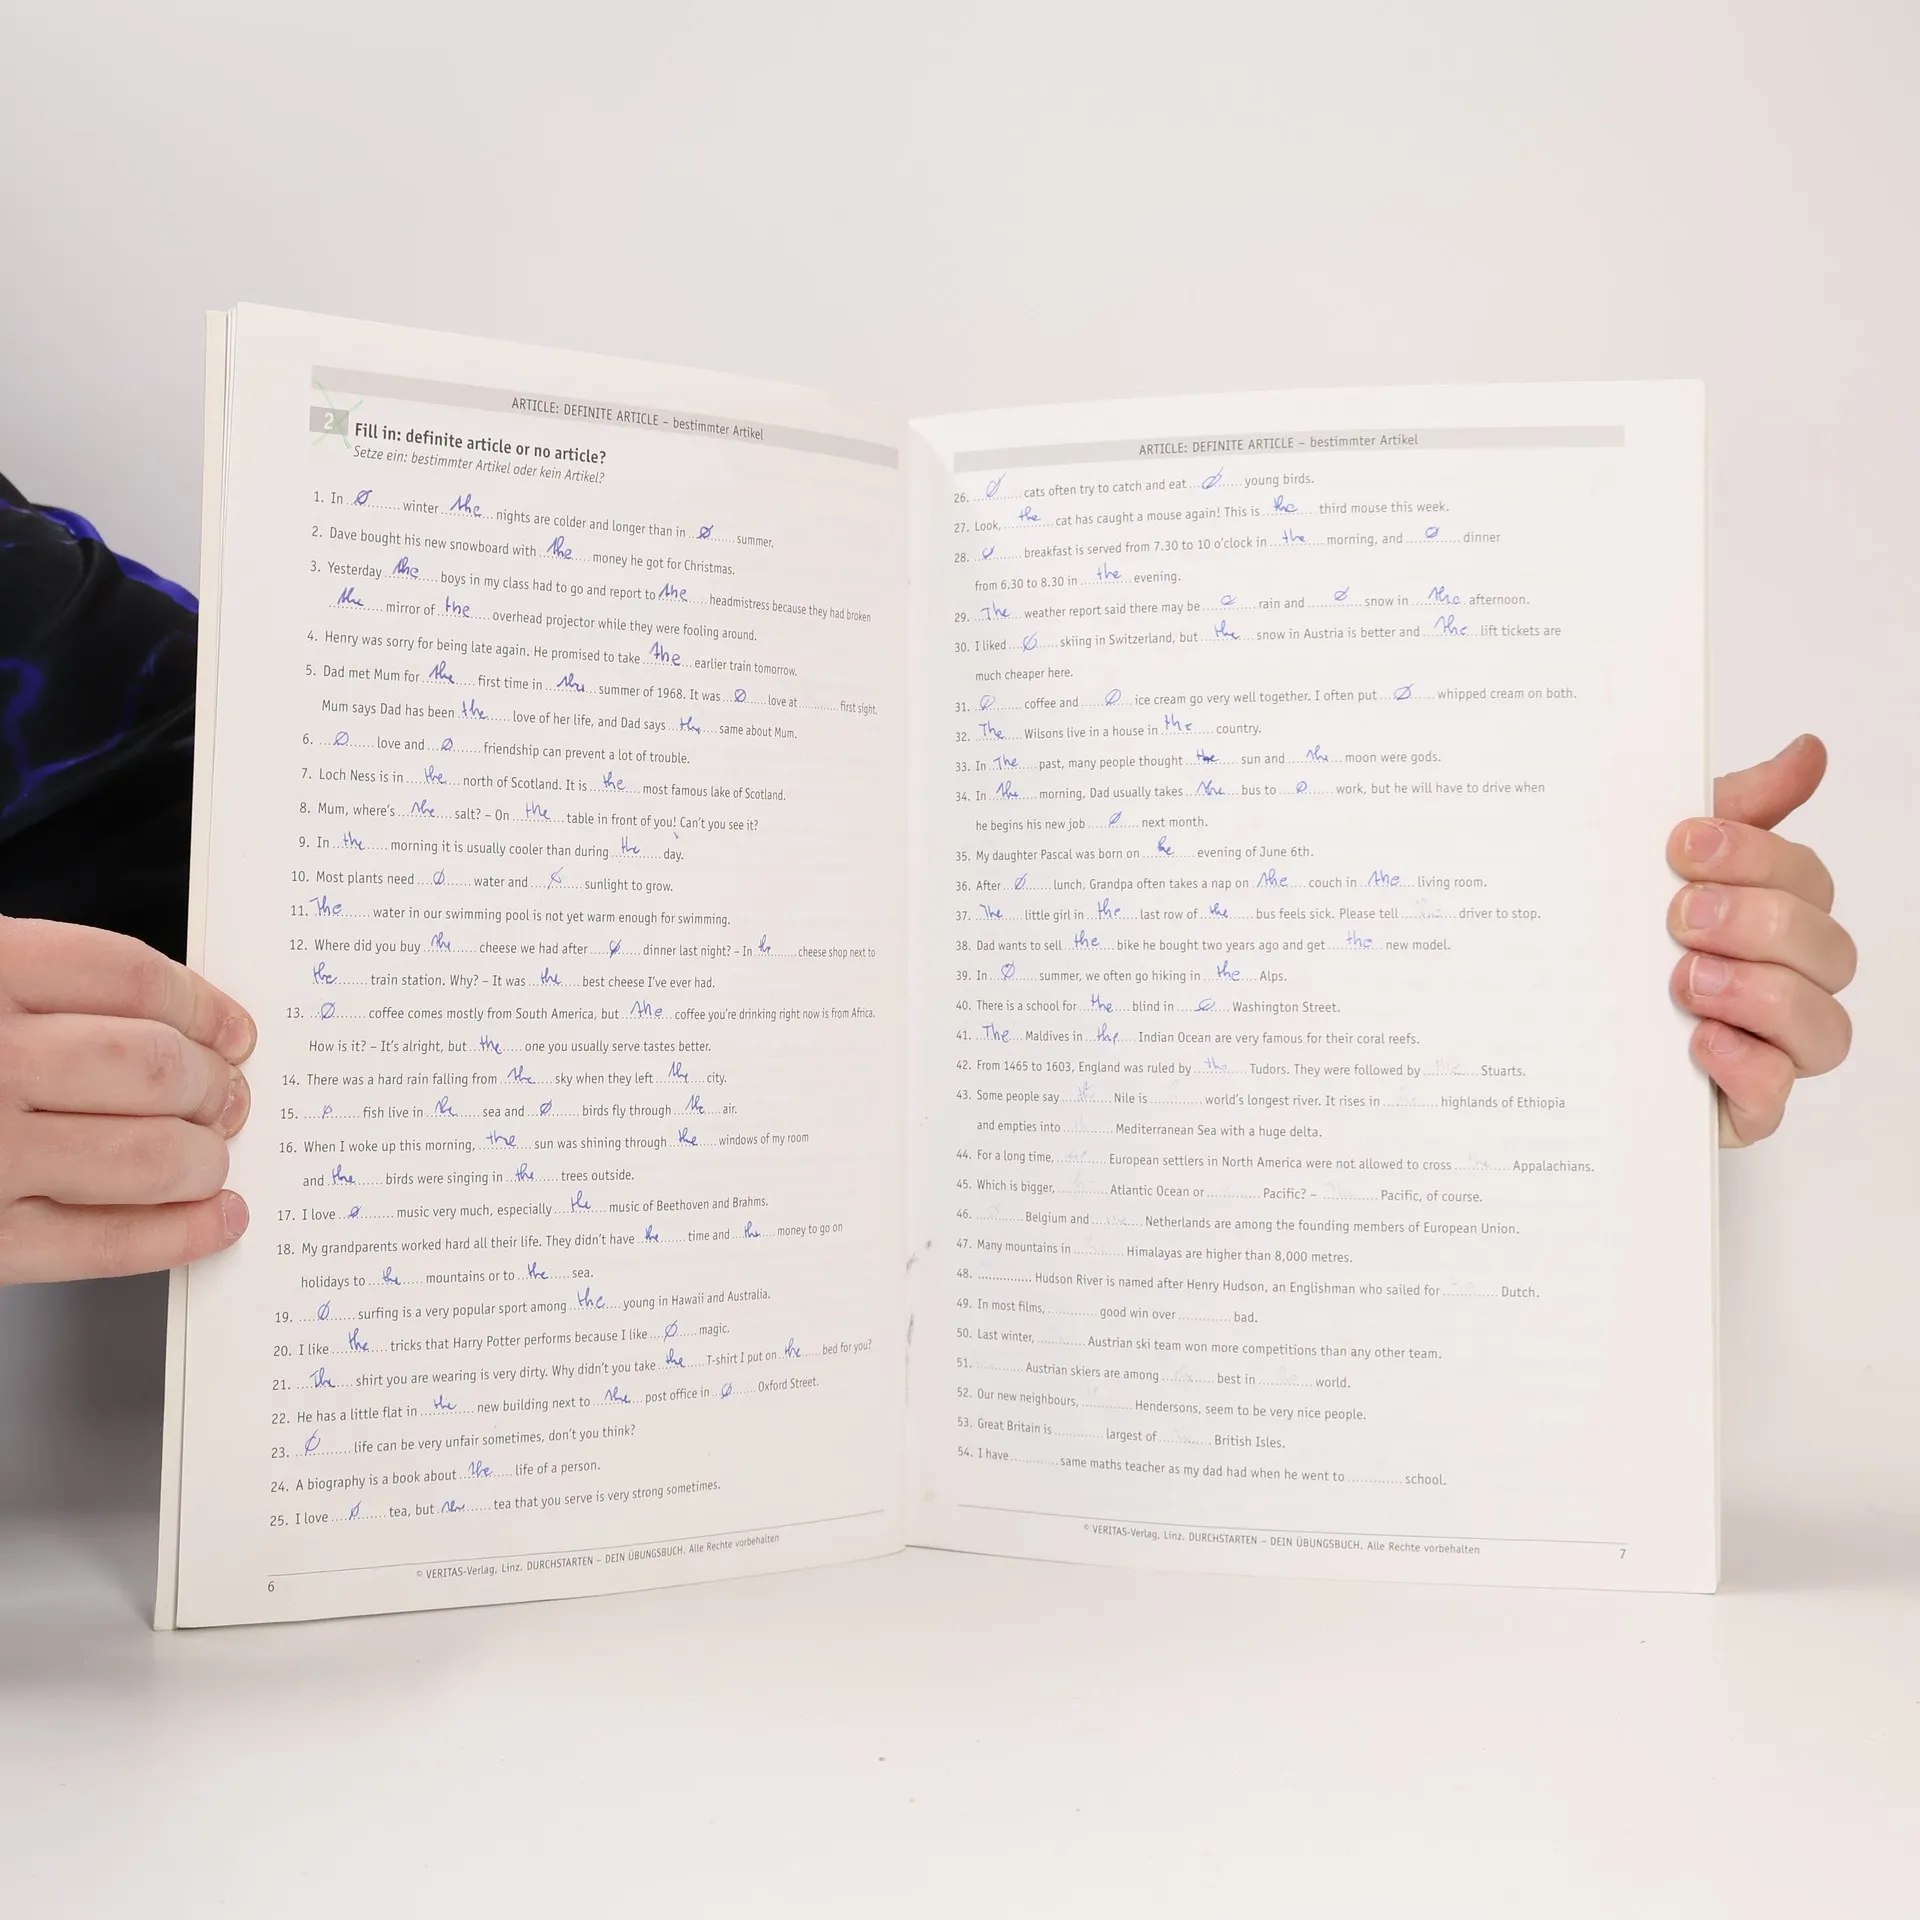 ARTICLE: DEFINITE ARTICLE – bestimmter Artikel
2 Fill in: definite article or no article?
Setze ein: bestimmter Artikel oder kein Artikel?
1. In ..Ø...... winter ..the... nights are colder and longer than in ..Ø...... summer.
2. Dave bought his new snowboard with ..the.... money he got for Christmas.
3. Yesterday ..the.... boys in my class had to go and report to ..the.... headmistress because they had broken
..the.... mirror of ..the.... overhead projector while they were fooling around.
4. Henry was sorry for being late again. He promised to take ..the... earlier train tomorrow.
5. Dad met Mum for ..the.... first time in ..the... summer of 1968. It was ..Ø..... love at ............ first sight.
Mum says Dad has been ..the..... love of her life, and Dad says ..the.... same about Mum.
6. ...Ø...... love and ..Ø...... friendship can prevent a lot of trouble.
7. Loch Ness is in ....the... north of Scotland. It is ..the.... most famous lake of Scotland.
8. Mum, where's ..the..... salt? – On ..the.... table in front of you! Can't you see it?
9. In ..the..... morning it is usually cooler than during ..the..... day.
10. Most plants need ...Ø...... water and ...Ø..... sunlight to grow.
11. The....... water in our swimming pool is not yet warm enough for swimming.
12. Where did you buy ..the..... cheese we had after ...Ø..... dinner last night? – In the...... cheese shop next to
the....... train station. Why? – It was ..the.... best cheese I've ever had.
13. ..Ø....... coffee comes mostly from South America, but ..the... coffee you're drinking right now is from Africa.
How is it? – It's alright, but ..the..... one you usually serve tastes better.
14. There was a hard rain falling from ..the.... sky when they left ..the.... city.
15. ...Ø...... fish live in ..the.... sea and ..Ø...... birds fly through ..the.... air.
16. When I woke up this morning, ..the.... sun was shining through ..the.... windows of my room
and .the...... birds were singing in ..the.... trees outside.
17. I love ..Ø....... music very much, especially ...the... music of Beethoven and Brahms.
18. My grandparents worked hard all their life. They didn't have ..the..... time and ..the.... money to go on
holidays to ...the..... mountains or to ..the..... sea.
19. ....Ø...... surfing is a very popular sport among ..the.... young in Hawaii and Australia.
20. I like ....the.... tricks that Harry Potter performs because I like ...Ø..... magic.
21. ...The.... shirt you are wearing is very dirty. Why didn't you take ..the..... T-shirt I put on ..the..... bed for you?
22. He has a little flat in ...the.... new building next to ...the... post office in ..Ø...... Oxford Street.
23. ..Ø........ life can be very unfair sometimes, don't you think?
24. A biography is a book about ..the..... life of a person.
25. I love ....Ø...... tea, but the....... tea that you serve is very strong sometimes.
© VERITAS-Verlag, Linz. DURCHSTARTEN – DEIN ÜBUNGSBUCH. Alle Rechte vorbehalten
6
ARTICLE: DEFINITE ARTICLE – bestimmter Artikel
26. ...Ø...... cats often try to catch and eat ..Ø...... young birds.
27. Look, ...the.... cat has caught a mouse again! This is ..the..... third mouse this week.
28. ..Ø...... breakfast is served from 7.30 to 10 o'clock in ..the.... morning, and ....Ø..... dinner
from 6.30 to 8.30 in ...the... evening.
29. ..The... weather report said there may be ....Ø..... rain and ....Ø..... snow in ..the.. afternoon.
30. I liked ...Ø..... skiing in Switzerland, but ..the.... snow in Austria is better and ...the... lift tickets are
much cheaper here.
31. ..Ø....... coffee and ....Ø.... ice cream go very well together. I often put ...Ø...... whipped cream on both.
32. .The..... Wilsons live in a house in the...... country.
33. In .The.... past, many people thought ..the..... sun and ...the... moon were gods.
34. In .the..... morning, Dad usually takes ..the.... bus to ...Ø..... work, but he will have to drive when
he begins his new job ....Ø..... next month.
35. My daughter Pascal was born on ...the..... evening of June 6th.
36. After ..Ø....... lunch, Grandpa often takes a nap on .the.... couch in .the.... living room.
37. .The..... little girl in ..the.... last row of ..the..... bus feels sick. Please tell ..the.... driver to stop.
38. Dad wants to sell ..the.... bike he bought two years ago and get ....the... new model.
39. In ...Ø...... summer, we often go hiking in ..the.... Alps.
40. There is a school for ..the.... blind in ...Ø..... Washington Street.
41. ..The.... Maldives in ..the.... Indian Ocean are very famous for their coral reefs.
42. From 1465 to 1603, England was ruled by ..the.... Tudors. They were followed by ..the..... Stuarts.
43. Some people say ....the.... Nile is ............ world's longest river. It rises in ............ highlands of Ethiopia
and empties into ............ Mediterranean Sea with a huge delta.
44. For a long time, ............ European settlers in North America were not allowed to cross ............ Appalachians.
45. Which is bigger, ............ Atlantic Ocean or ............ Pacific? – ............ Pacific, of course.
46. ............ Belgium and ............ Netherlands are among the founding members of European Union.
47. Many mountains in ............ Himalayas are higher than 8,000 metres.
48. ............ Hudson River is named after Henry Hudson, an Englishman who sailed for ............ Dutch.
49. In most films, ............ good win over ............ bad.
50. Last winter, ............ Austrian ski team won more competitions than any other team.
51. ............ Austrian skiers are among ............ best in ............ world.
52. Our new neighbours, ............ Hendersons, seem to be very nice people.
53. Great Britain is ............ largest of ............ British Isles.
54. I have ............ same maths teacher as my dad had when he went to ............ school.
© VERITAS-Verlag, Linz. DURCHSTARTEN – DEIN ÜBUNGSBUCH. Alle Rechte vorbehalten
7